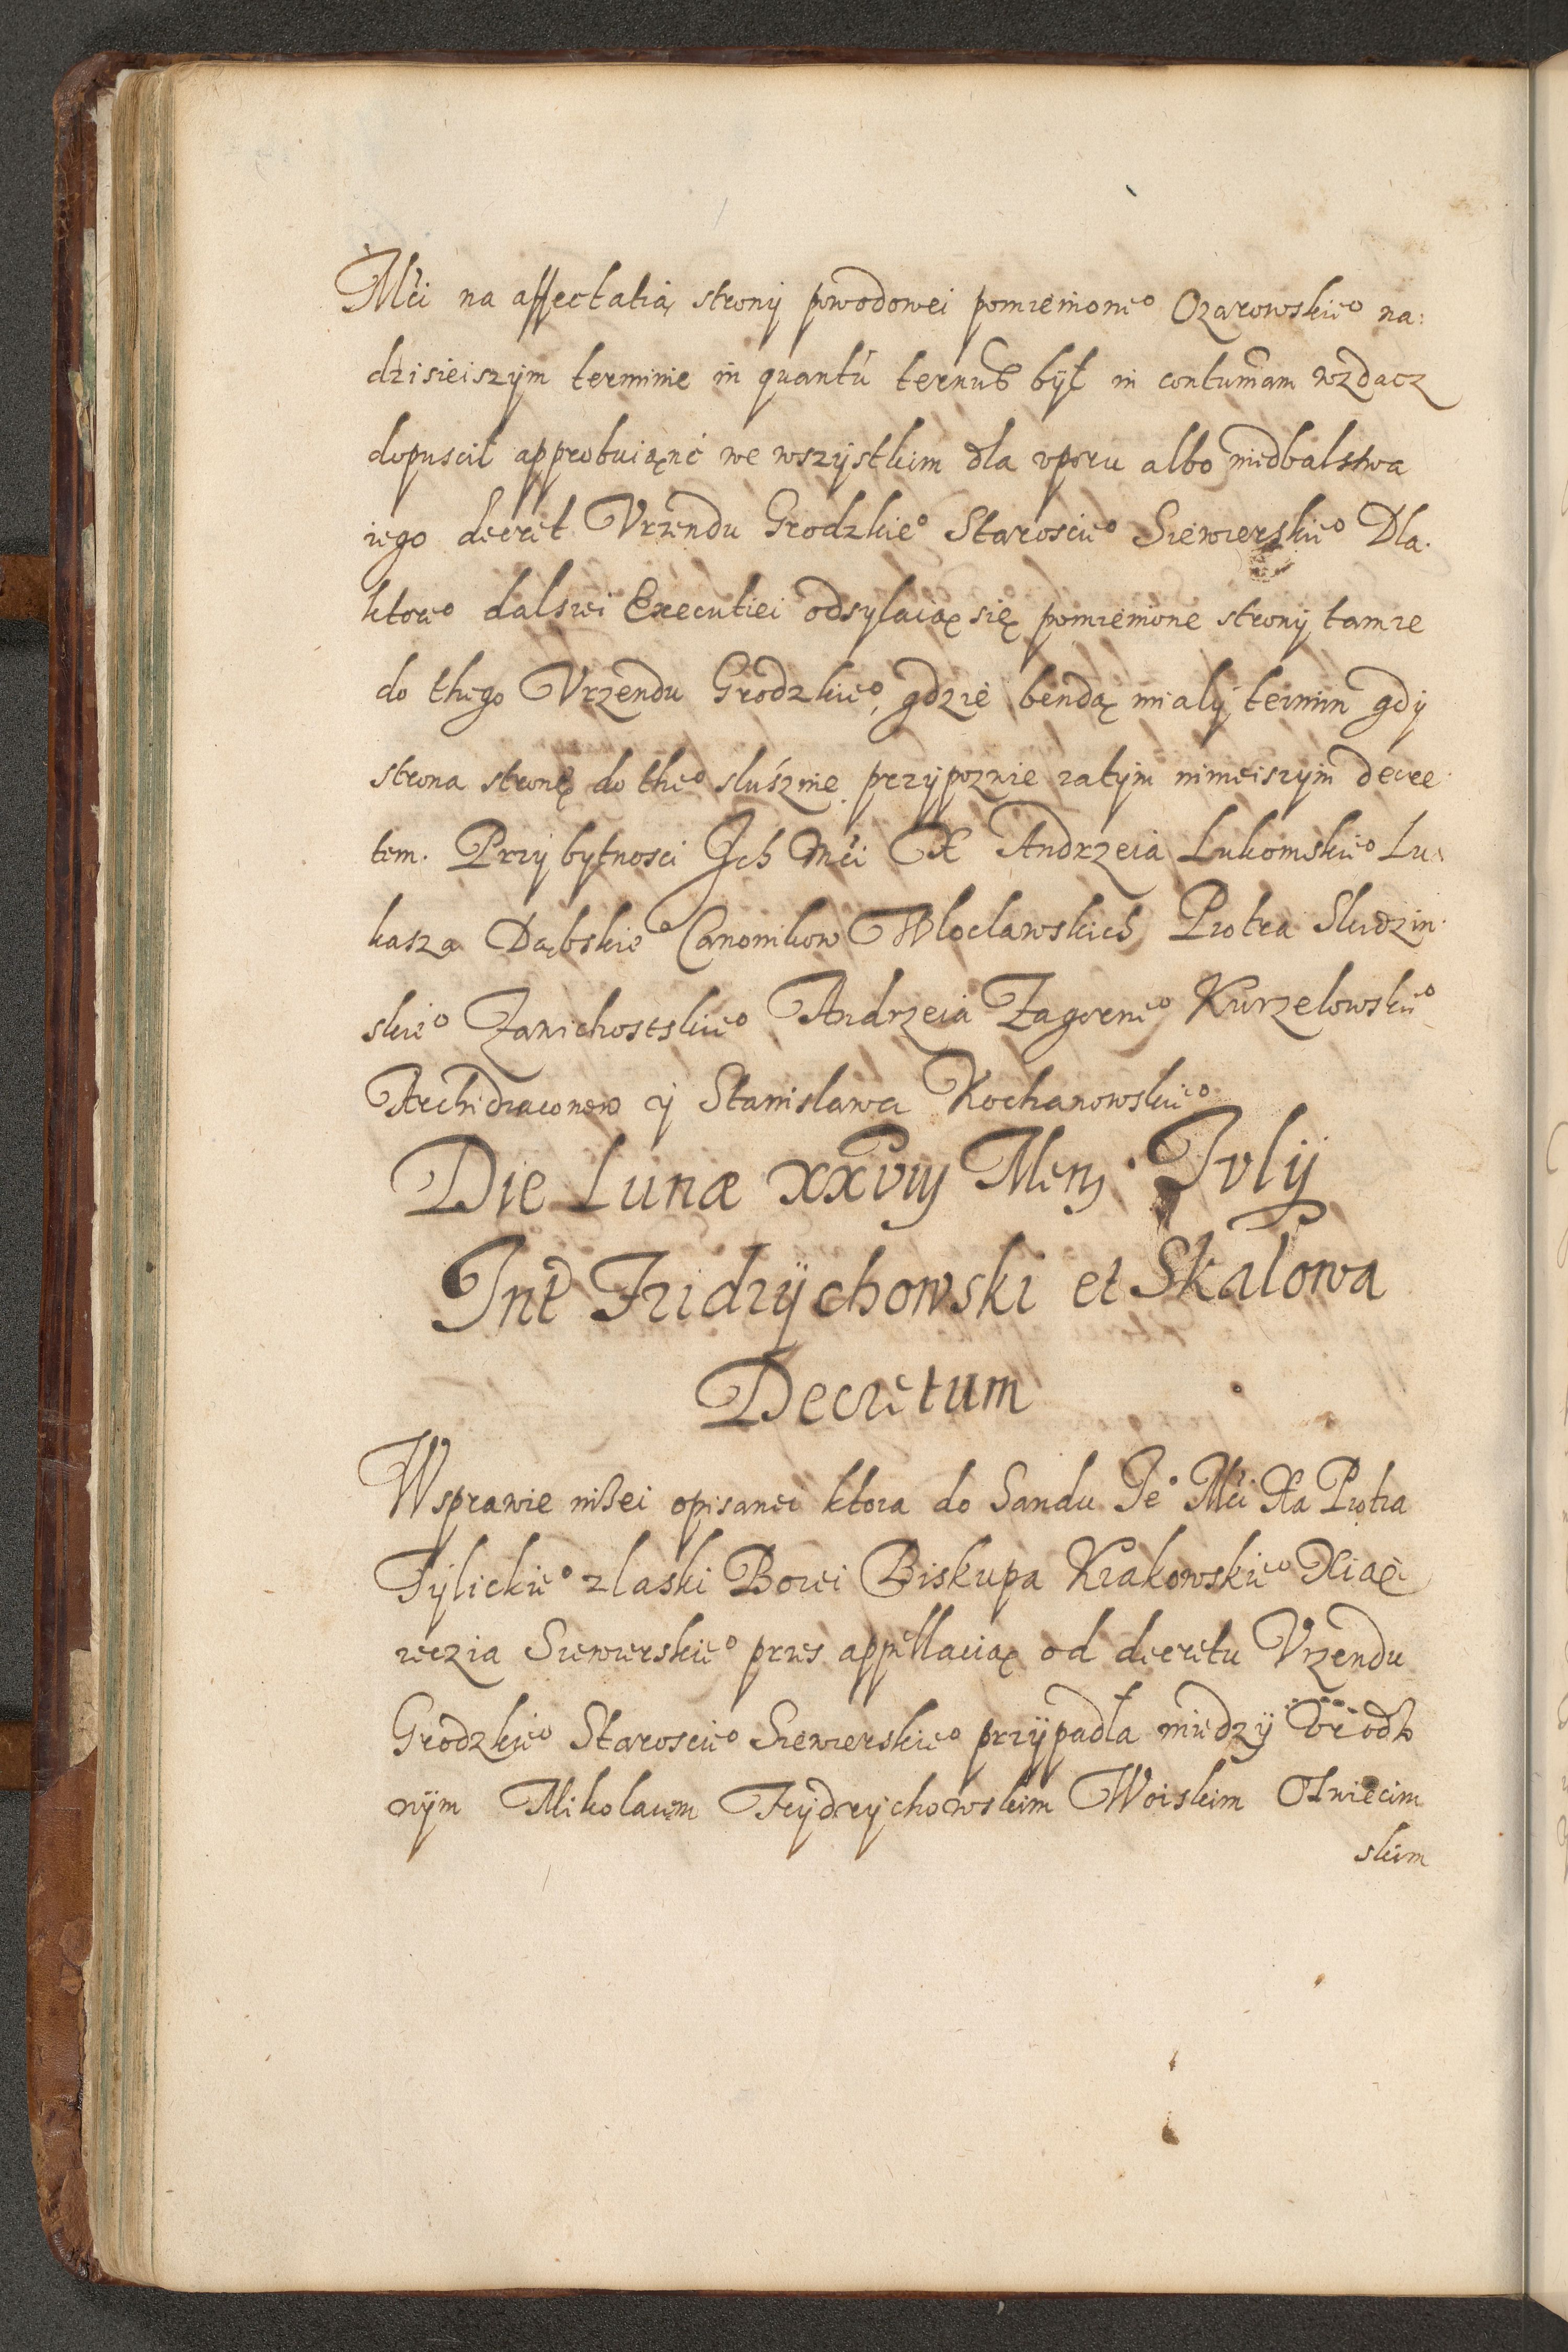 Mći na affectatią strony powodowei pomienione° Ozarowskie° na:
dzisieiszÿm terminie in quantũ tenut bÿł in contumam wzdacz
dopuscił approbuiącnc we wszÿstkim dla vporu albo niedbalstwa
iego decret Vrzendu Grodzkie° Staroscie° Siewierskie° Dla.
ktore° dalsżei Executiei odsyłaiąc się pomienione stronÿ tamże
do thego Vrzendu Grodzkie°, gdzie bendą mialÿ termin gdÿ
strona stronę do the° slusznie przÿpoznie zatÿm ninieiszÿm decre
tem. Przÿ bytnosci Ich Mći X Andrzeia Lukomskie° Lu
kasza Dąbskie° Canonikow Wloclawskich Piotra Skidzin
skie° Zawichostskie° Andrzeia Zagorne° Kurzelowskie°
Archidiaconow ÿ Stanislawa Kochanowskie°
Die Lunæ xxviij Mens. Ivlij
Int Fridrÿchowski et Skałowa
Decretum
Wsprawie niżei opisanei ktora do Sandu Ie° Mći Xa Piotra
Tÿlickie° zlaski Bożei Biskupa Krakowskie° Xiąę
żezia Siewierskie° przes appellacią od decretu Vrzendu
Grodzkie° Staroscie° Siewierskie° przÿpadła międzÿ Vrodzo
nÿm Mikolaiem Frÿdrÿchowskim Woiskim Oswięcim
skim